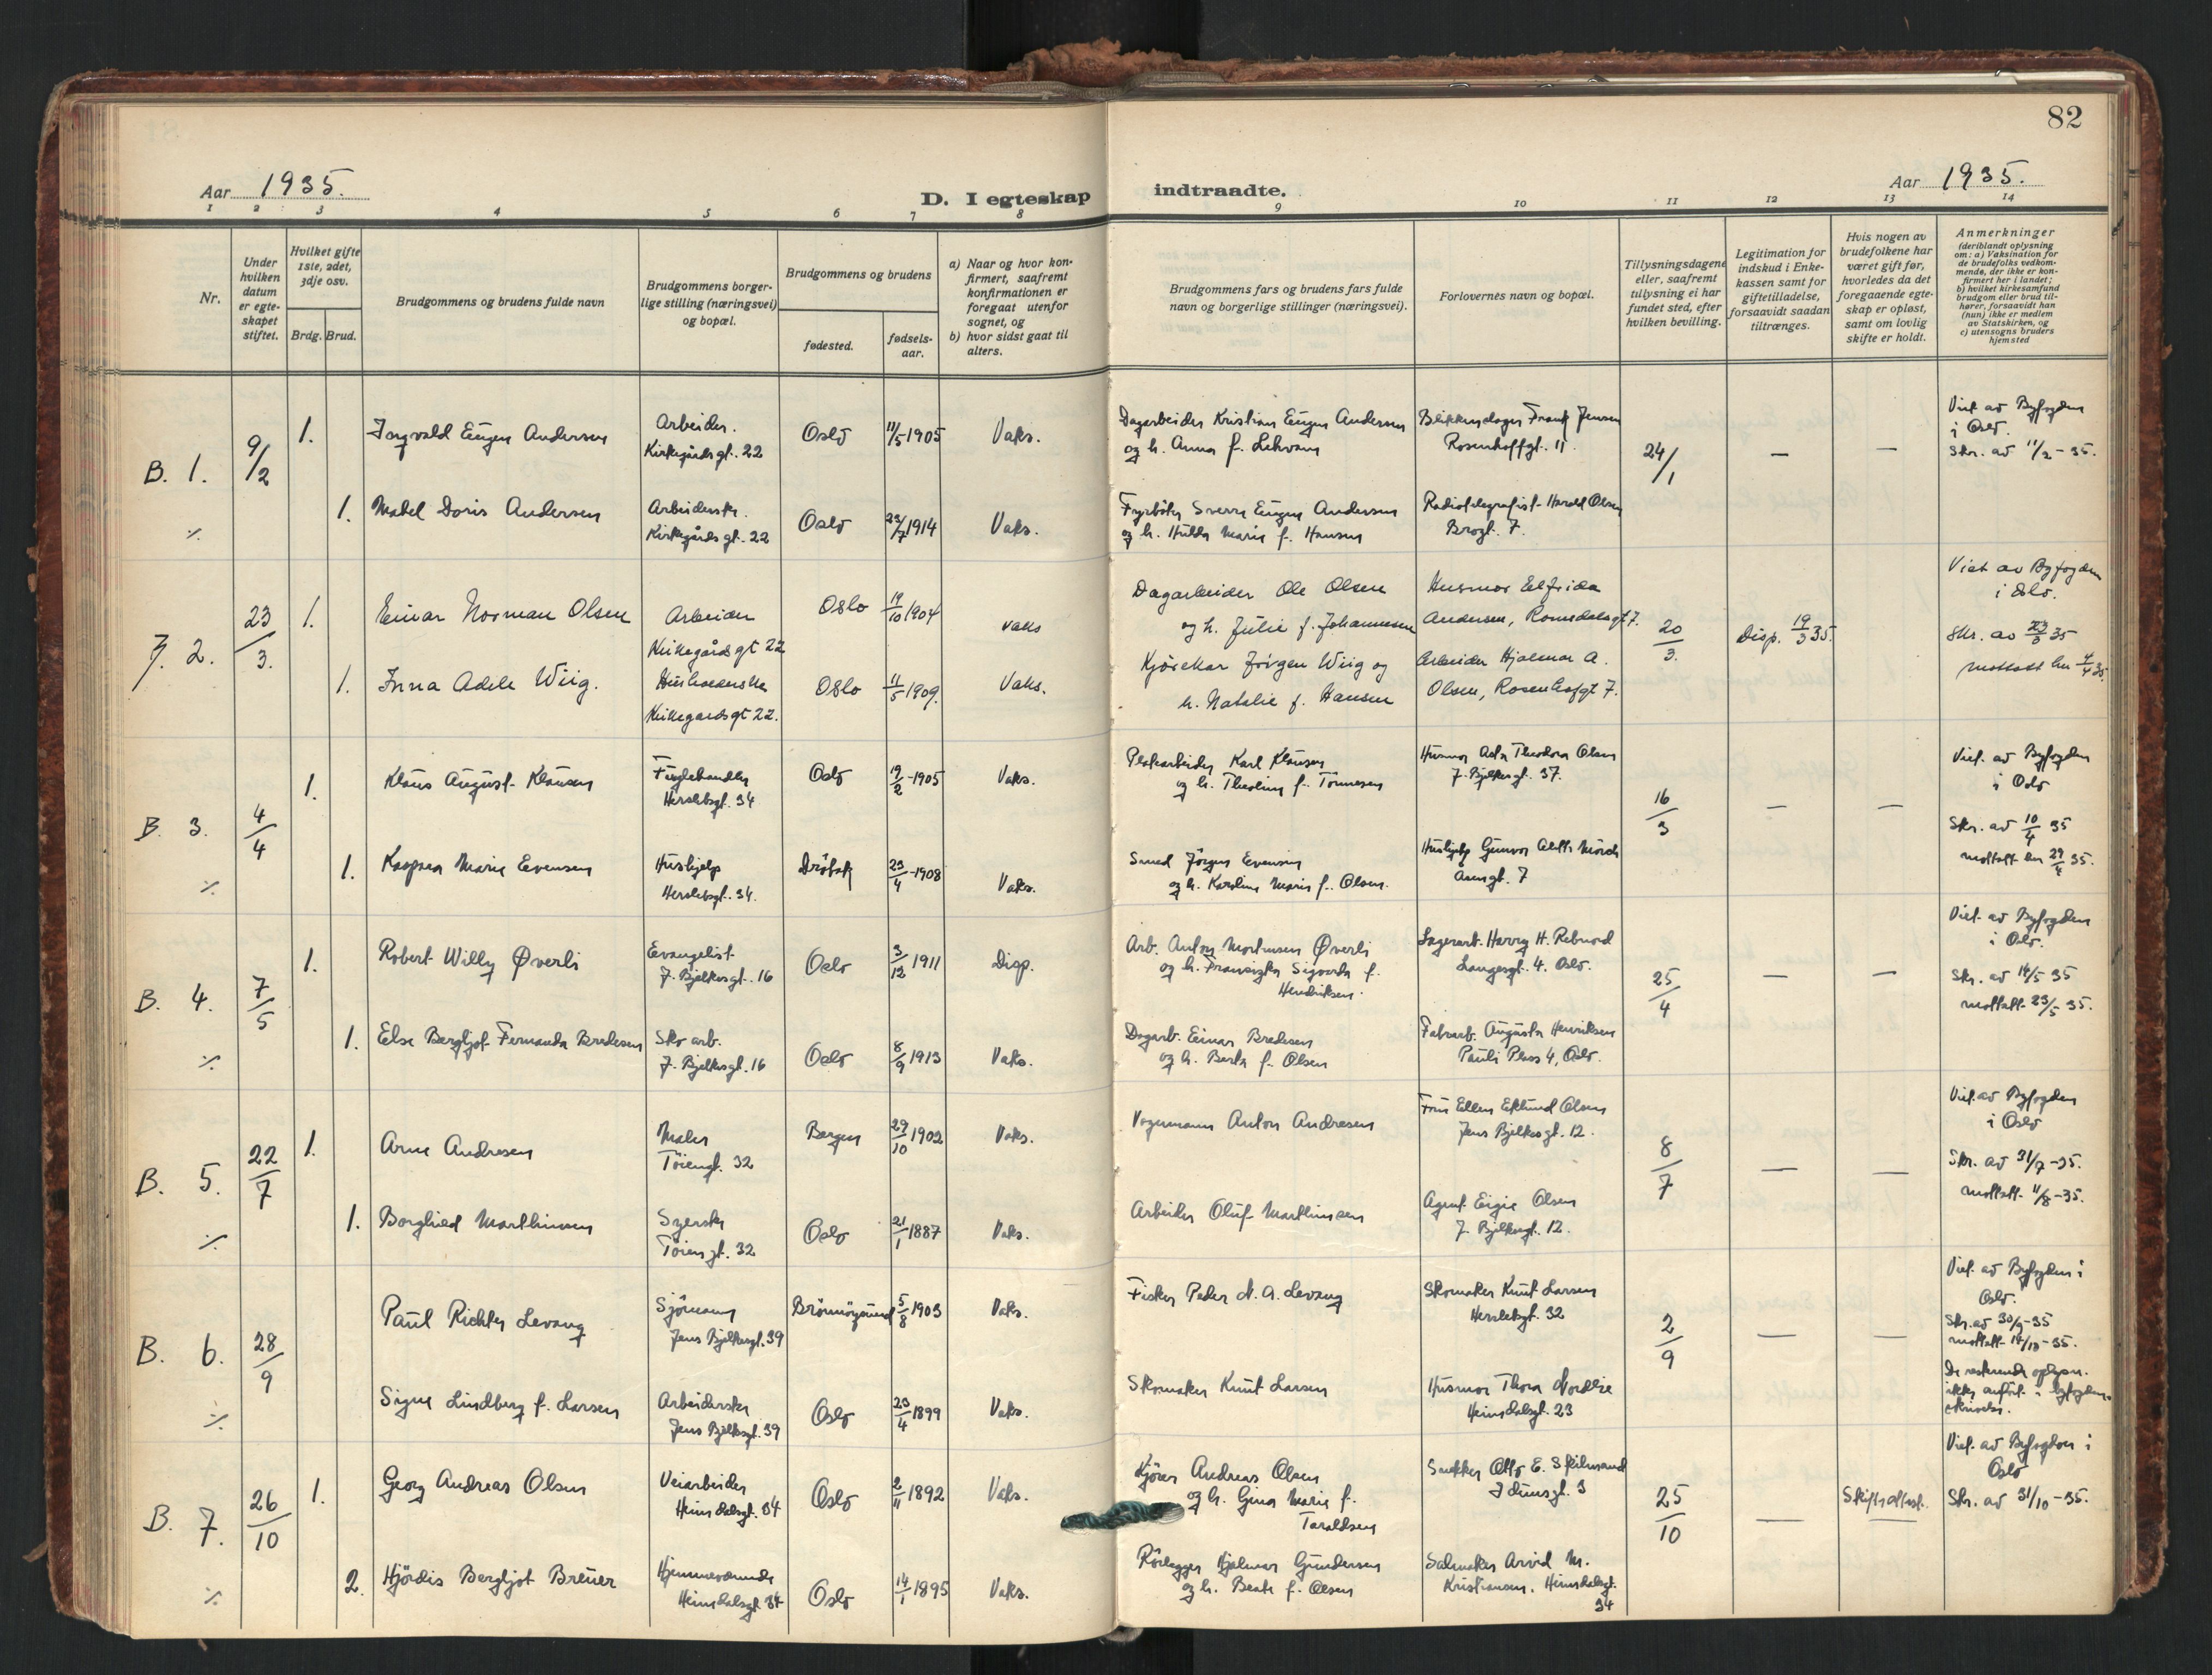 82
Aar 1935.
D. I egteskap indtraadte.
Aar 1935.
1 2 3 4 5 6 7 8 9 10 11 12 13 14
Nr.
Under hvilken datum er egte-skapet stiftet.
Hvilket gifte 1ste, 2det, 3dje osv.
Brdg. Brud.
Brudgommens og brudens fulde navn
Brudgommens borger-lige stilling (næringsvei) og bopæl.
Brudgommens og brudens
fødested.
fødsels-aar.
a) Naar og hvor kon-firmert, saafremt konfirmationen er foregaat utenfor sognet, og
b) hvor sidst gaat til alters.
Brudgommens fars og brudens fars fulde navn og borgerlige stillinger (næringsvei).
Forlovernes navn og bopæl.
Tillysningsdagene eller, saafremt tillysning ei har fundet sted, efter hvilken bevilling.
Legitimation for indskud i Enke-kassen samt for giftetilladelse, forsaavidt saadan tiltrænges.
Hvis nogen av brudefolkene har været gift før, hvorledes da det foregaaende egte-skap er opløst, samt om lovlig skifte er holdt.
Anmerkninger
(deriblandt oplysning om: a) Vaksination for de brudefolks vedkom-mende, der ikke er kon-firmert her i landet; b) hvilket kirkesamfund brudgom eller brud til-hører, forsaavidt han (hun) ikke er medlem av Statskirken, og c) utensogns bruders hjemsted
B. 1. 9/2 1. Ingvald Eugen Andersen Arbeider. Kirkegårds gt. 22 Oslo 11/5 1905 Vaks. Dagarbeider Kristian Eugen Andersen og h. Anna f. Blikkenslager Frank Jensen Rosenhoffgt. 11 24/1 — — Viet av Byfogden i Oslo. Skr. av 11/2-35.
% 1. Mabel Doris Andersen Arbeiderske. Kirkegårds gt. 22 Oslo 23/7 1914 Vaks. Fyrbøter Sverre Eugen Andersen og h. Hulda Marie f. Hansen Radiotelegrafist Harald Olsen Brogt. 7.
J. 2. 23/3. 1. Einar Norman Olsen Arbeider Kirkegårds gt 22 Oslo 19/10 1904 vaks Dagarbeider Ole Olsen og h. Julie f. Johannesen Husmor Elfrida Andersen, Romsdalsgt 7. 20/3. Disp. 19/3 35. Viet av Byfogden i Oslo. Skr. av 23/3 35 mottatt her 4/4 35.
1. Inna Adele Wiig. Kirkegaards gt 22. Oslo 11/5 1909. Vaks. Kjørekar Jørgen Wiig og h. Natalie f. Hansen Arbeider Hjalmar A. Olsen, Rosenhofgt 7.
B. 3. 4/4 1. Klaus August Klausen Fuglehandler Herslebsgt. 34 Oslo 19/2-1905 Vaks. Platearbeider Karl Klausen og h. Theoline f. Tønnesen Husmor Asta Theodora Olsen J. Bjelkesgt. 37. 16/3 — — Viet. av Byfogden i Oslo Skr. av 10/4 35 mottatt her 29/4 35.
% 1. Kaspara Marie Evensen Hushjelp Herslebsgt. 34. Drøbak 23/4-1908 Vaks. Smed Jørgen Evensen og h. Karoline Marie f. Olsen. Hushjelp Gunvor Mørch Aasengt. 7
B. 4. 7/5 1. Robert Willy Øverli Evangelist J. Bjelkesgt. 16 Oslo 3/12 1911 Disp. Arb. Anton Mortensen Øverli og h. Fransiska Sigvarda f. Hendriksen. Lagerarb. Harry H. Rebnord Langesgt. 4. Oslo. 25/4 — — Viet av Byfogden i Oslo. Skr. av 14/5 35 mottatt 23/5 35.
% 1. Else Bergljot Fernanda Bredesen Sko arb. J. Bjelkesgt. 16 Oslo 8/9 1913 Vaks. Dagarb. Einar Bredesen og h. Berta f. Olsen Fabrarb. Augusta Henriksen Pauls Plass 4, Oslo.
B. 5. 22/7 1. Arne Andresen Maler Töiengt. 32 Bergen 29/10 1902 Vaks. Vognmann Anton Andresen Fru Ellen Eklund Olsen Jens Bjelkesgt. 12. 8/7 — — Viet av Byfogden i Oslo Skr. av 31/7-35. mottatt 11/8-35.
% 1. Borghild Marthinsen Syerske Töiengt. 32 Oslo 21/1 1887 Vaks. Arbeider Oluf Marthinsen Agent Olsen J. Bjelkesgt. 12.
B. 6. 28/9 Paul Richter Levang Sjömann Jens Bjelkesgt. 39 Brönnöysund 5/8 1903 Vaks. Fisker Peder N. A. Levang Skomaker Knut Larsen Herslebsgt. 32 2/9 — — Viet. av Byfogden i Oslo. Skr. av 30/9-35 mottatt 14/10-35. De resterende oplysn. ikke anført i byfogdens skrivelse.
% Signe Lindberg f. Larsen Arbeiderske Jens Bjelkesgt. 39 Oslo 23/4 1899 Vaks. Skomaker Knut Larsen Husmor Thora Nordlie Heimdalsgt. 23
B. 7. 26/10 1. Georg Andreas Olsen Veiarbeider Heimdalsgt. 34 Oslo 2/11 1892 Vaks. Kjører Andreas Olsen og h. Gina Marie f. Taraldsen Snekker Otto E. Idunsgt. 3 25/10 — Skifteattest. Viet. av Byfogden i Oslo Skr. av 31/10-35.
% 2. Hjördis Bergljot Breuer Hjemmeværende Heimdalsgt. 34 Oslo 14/1 1895 Vaks. Rørlegger Hjalmar Gundersen og h. Beate f. Olsen Salmaker Arvid M. Kristiansen. Heimdalsgt. 34